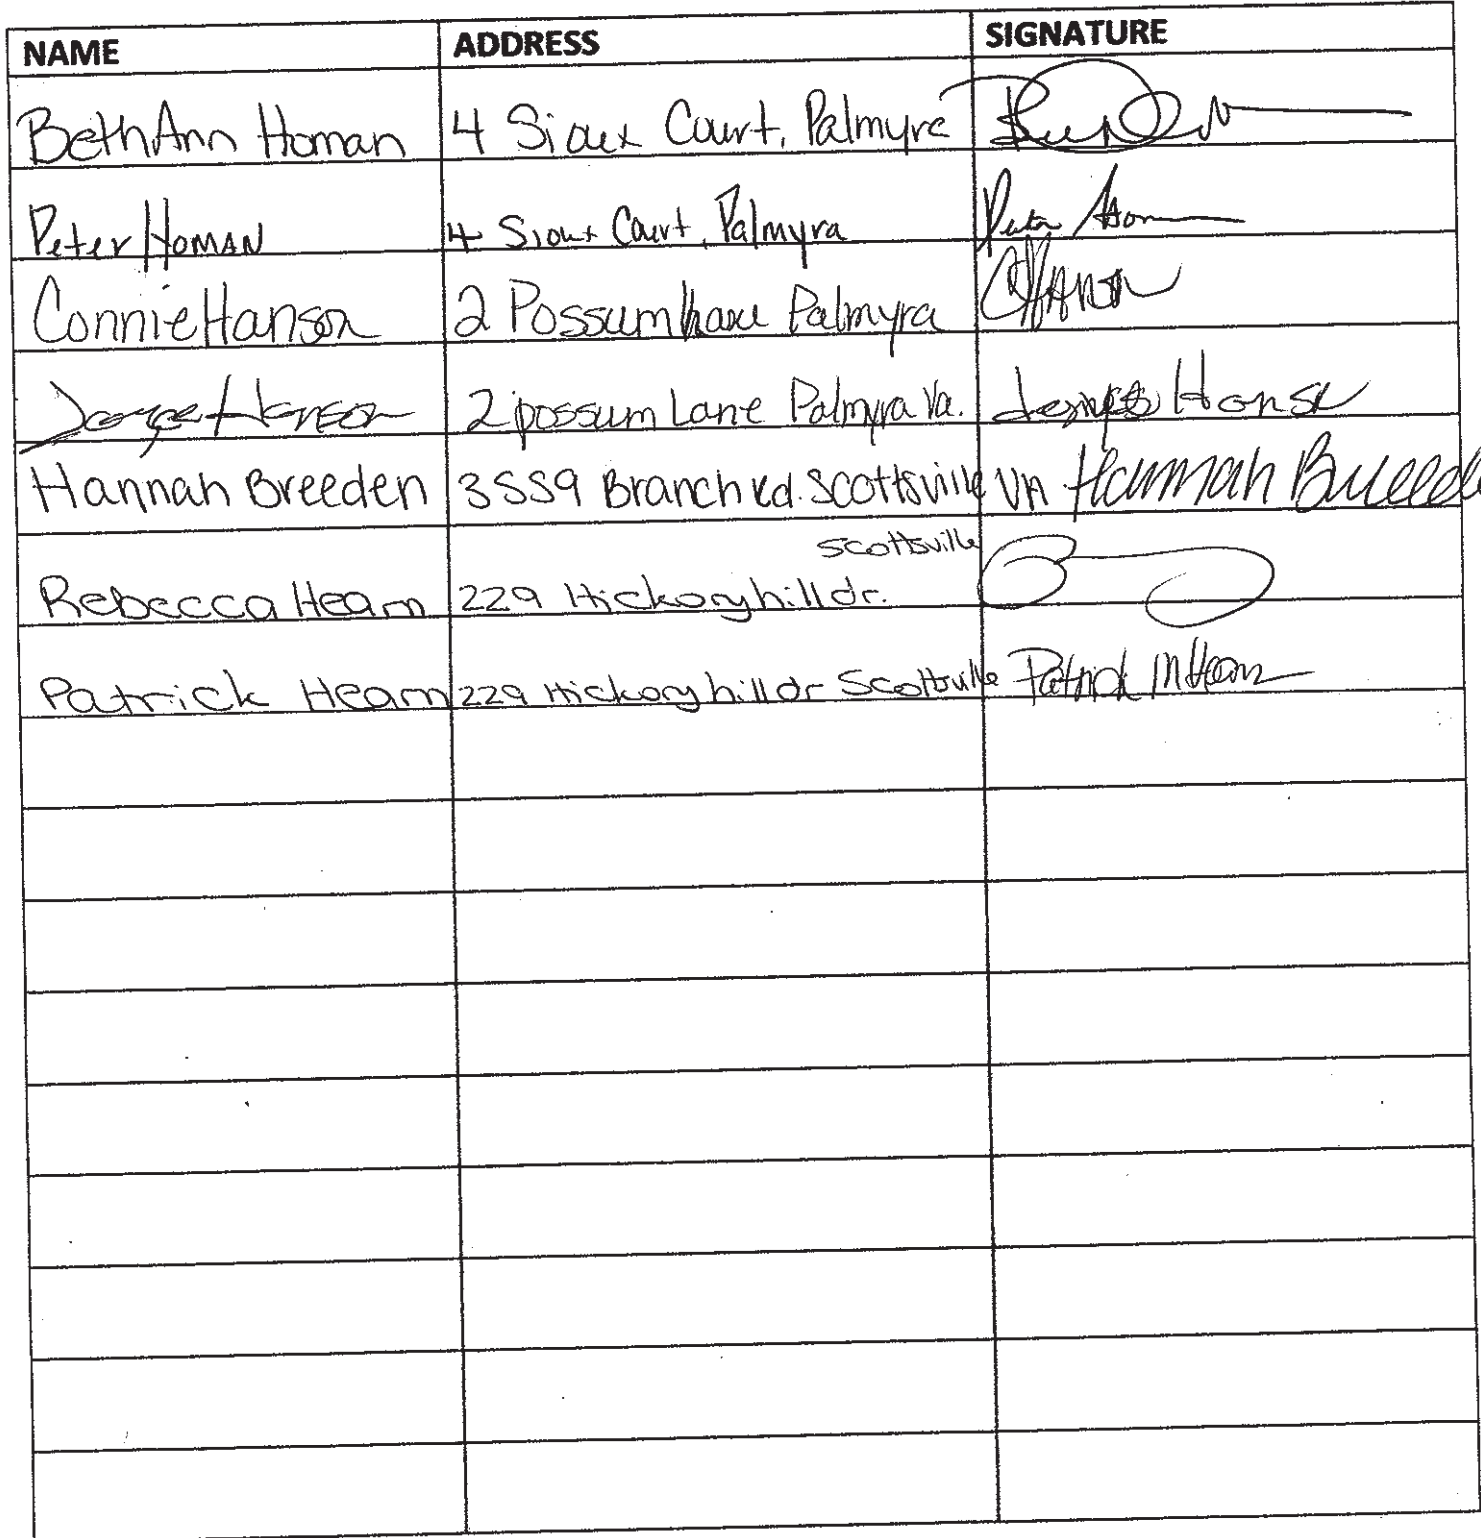 NAME ADDRESS SIGNATURE
BethAnn Homan 4 Sioux Court, Palmyra
Peter Homan 4 Sioux Court, Palmyra Peter Homan
Connie Hanson 2 Possum Lane Palmyra CHanson
George Hanson 2 possum Lane Palmyra Va. Hanson
Hannah Breeden 3559 Branch rd. Scottsville VA Hannah Breeden
scottsville
Rebecca Hearn 229 Hickory hill dr.
Patrick Hearn 229 Hickory hill dr Scottsville Patrick M Hearn